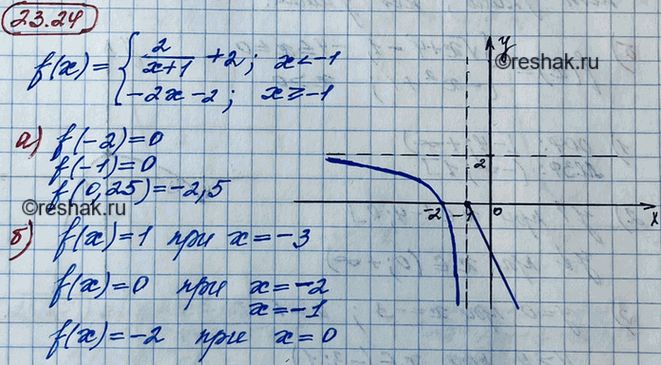 23.24
f(x) = { 2/(x+1) + 2; x < -1
-2x - 2; x ≥ -1
а) f(-2) = 0
f(-1) = 0
f(0,25) = -2,5
©reshak.ru
б) f(x) = 1 при x = -3
f(x) = 0 при x = -2
x = -1
f(x) = -2 при x = 0
©reshak.ru
y
©reshak.ru
2
-2 -1 0 x